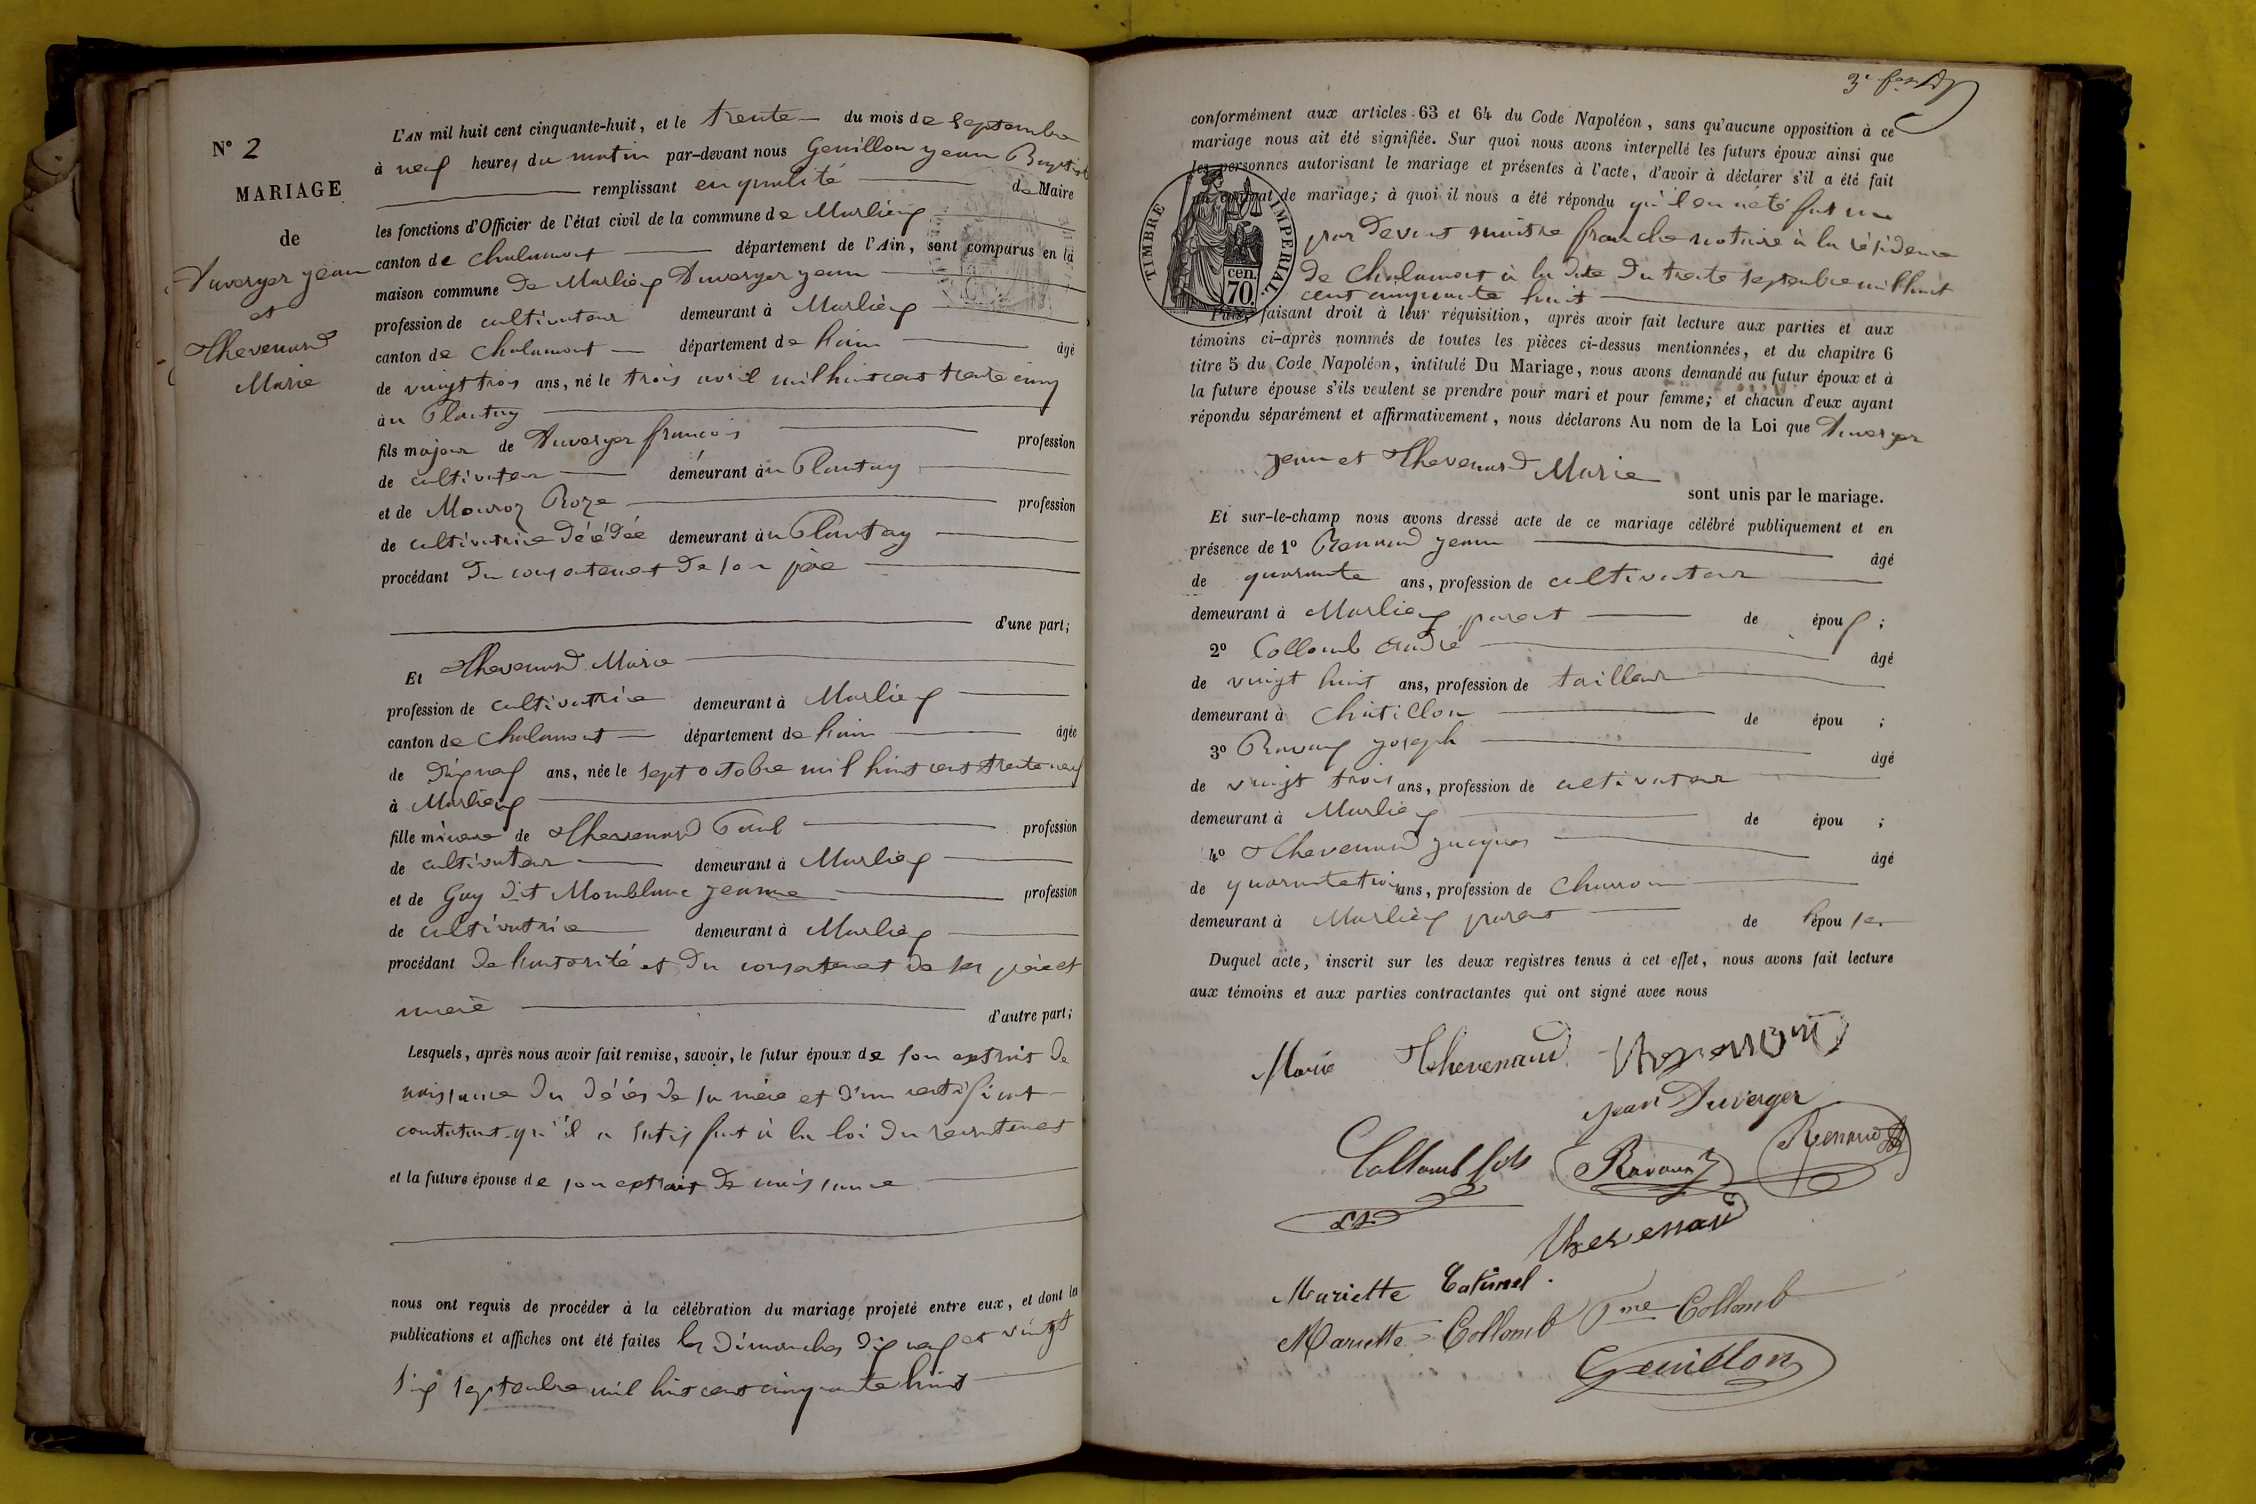 N° 2
MARIAGE
de
Duverger jean
et
Thevenard
Marie
L'AN mil huit cent cinquante-huit, et le trente du mois de Septembre
à neuf heures du matin par-devant nous Genillon jean Baptiste
remplissant en qualité de Maire
les fonctions d'Officier de l'état civil de la commune de Marlieux
canton de Chalamont département de l'Ain, sont comparus en la
maison commune de Marlieux Duverger jean
profession de cultivateur demeurant à Marlieux
canton de Chalamont département de l'ain âgé
de vingt trois ans, né le trois avril mil huit cent trente cinq
au Plantay
fils majeur de Duverger francois profession
de cultivateur demeurant au Plantay
et de Mouroz Roze profession
de cultivatrice décédée demeurant au Plantay
procédant du consentement de son père
d'une part;
Et Thevenard Marie
profession de cultivatrice demeurant à Marlieux
canton de Chalamont département de l'ain âgée
de dix neuf ans, née le sept octobre mil huit cent trente neuf
à Marlieux
fille mineure de Thevenard Paul profession
de cultivateur demeurant à Marlieux
et de Guy dit Monblanc jeanne profession
de cultivatrice demeurant à Marlieux
procédant de l'autorité et du consentement de ses père et
mère d'autre part;
Lesquels, après nous avoir fait remise, savoir, le futur époux de son extrait de
naissance du décès de sa mère et d'un certificat
constatant qu'il a satisfait à la loi du recrutement
et la future épouse de son extrait de naissance
nous ont requis de procéder à la célébration du mariage projeté entre eux, et dont les
publications et affiches ont été faites les dimanches dix neuf et vingt
six septembre mil huit cent cinquante huit
3e
conformément aux articles 63 et 64 du Code Napoléon, sans qu'aucune opposition à ce
mariage nous ait été signifiée. Sur quoi nous avons interpellé les futurs époux ainsi que
les personnes autorisant le mariage et présentes à l'acte, d'avoir à déclarer s'il a été fait
un contrat de mariage; à quoi il nous a été répondu qu'il en a été fait un
par devant maitre franche notaire à la résidence
de Chalamont à la date du trente septembre mil huit
cent cinquante huit
TIMBRE IMPERIAL.
cen.
70.
Puis, faisant droit à leur réquisition, après avoir fait lecture aux parties et aux
témoins ci-après nommés de toutes les pièces ci-dessus mentionnées, et du chapitre 6
titre 5 du Code Napoléon, intitulé Du Mariage, nous avons demandé au futur époux et à
la future épouse s'ils veulent se prendre pour mari et pour femme; et chacun d'eux ayant
répondu séparément et affirmativement, nous déclarons Au nom de la Loi que Duverger
jean et Thevenard Marie
sont unis par le mariage.
Et sur-le-champ nous avons dressé acte de ce mariage célébré publiquement et en
présence de 1° Renaud jean âgé
de quarante ans, profession de cultivateur
demeurant à Marlieux parent de époux ;
2° Collomb andré âgé
de vingt huit ans, profession de tailleur
demeurant à Chatillon de épou ;
3° Ravaux joseph âgé
de vingt trois ans, profession de cultivateur
demeurant à Marlieux de épou ;
4° Thevenard jacques âgé
de quarante trois ans, profession de Charron
demeurant à Marlieux parent de l'épouse.
Duquel acte, inscrit sur les deux registres tenus à cet effet, nous avons fait lecture
aux témoins et aux parties contractantes qui ont signé avec nous
Marie Thevenard Thevenard
jean Duverger
Collomb fils Ravaux Renaud
Thevenard
Mariette
Mariette Collomb Fme Collomb
Genillon